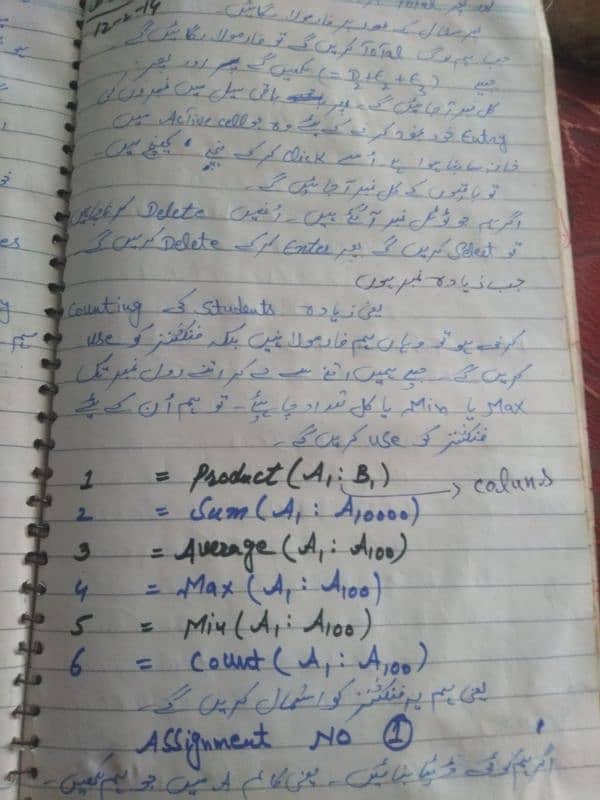 12-2-14
پر فارمولا لگائیں۔
جب ہم ہوگی Total کریں گے تو فارمولا لگائیں گے
جیسے (= D2+E2+F3) لکھیں گے اور پھر
کل نمبر آ جائیں گے۔ پھر باقی سیل میں نمبروں کی
Entry خود بخود کرنے کے لئے وہ جو Active cell میں
خانہ سا بنا ہوا ہے اُسے click کر کے نیچے کھینچتے ہیں۔
تو باقیوں کے کل نمبر آ جائیں گے۔
اگر ہم جو ٹوٹل نمبر آ گئے ہیں۔ اُنہیں Delete کرنا چاہیں
تو Select کریں گے پھر Enter کر کے Delete کریں گے
جب زیادہ نمبر ہوں
یعنی زیادہ Students کی Counting
کرنی ہو تو وہاں ہم فارمولا نہیں بلکہ فنکشنز کو use
کریں گے۔ جیسے ہمیں اتنے سے لے کر اتنے رول نمبر تک
Max یا Min یا کل تعداد چاہیئے۔ تو ہم اُن کے لئے
فنکشنز کو use کریں گے۔
1 = Product (A1 : B1) → coluns
2 = Sum (A1 : A10000)
3 = Average (A1 : A100)
4 = Max (A1 : A100)
5 = Min (A1 : A100)
6 = Count (A1 : A100)
یعنی ہم یہ فنکشنز کو استعمال کریں گے۔
Assignment NO 1
اگر ہم کوئی ڈیٹا بنائیں۔ یعنی کالم A میں جو ہم لکھیں۔